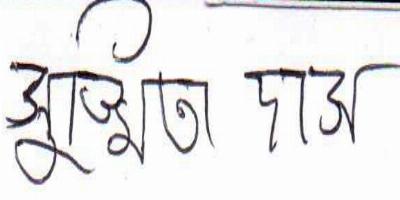 সুস্মিতা দাস